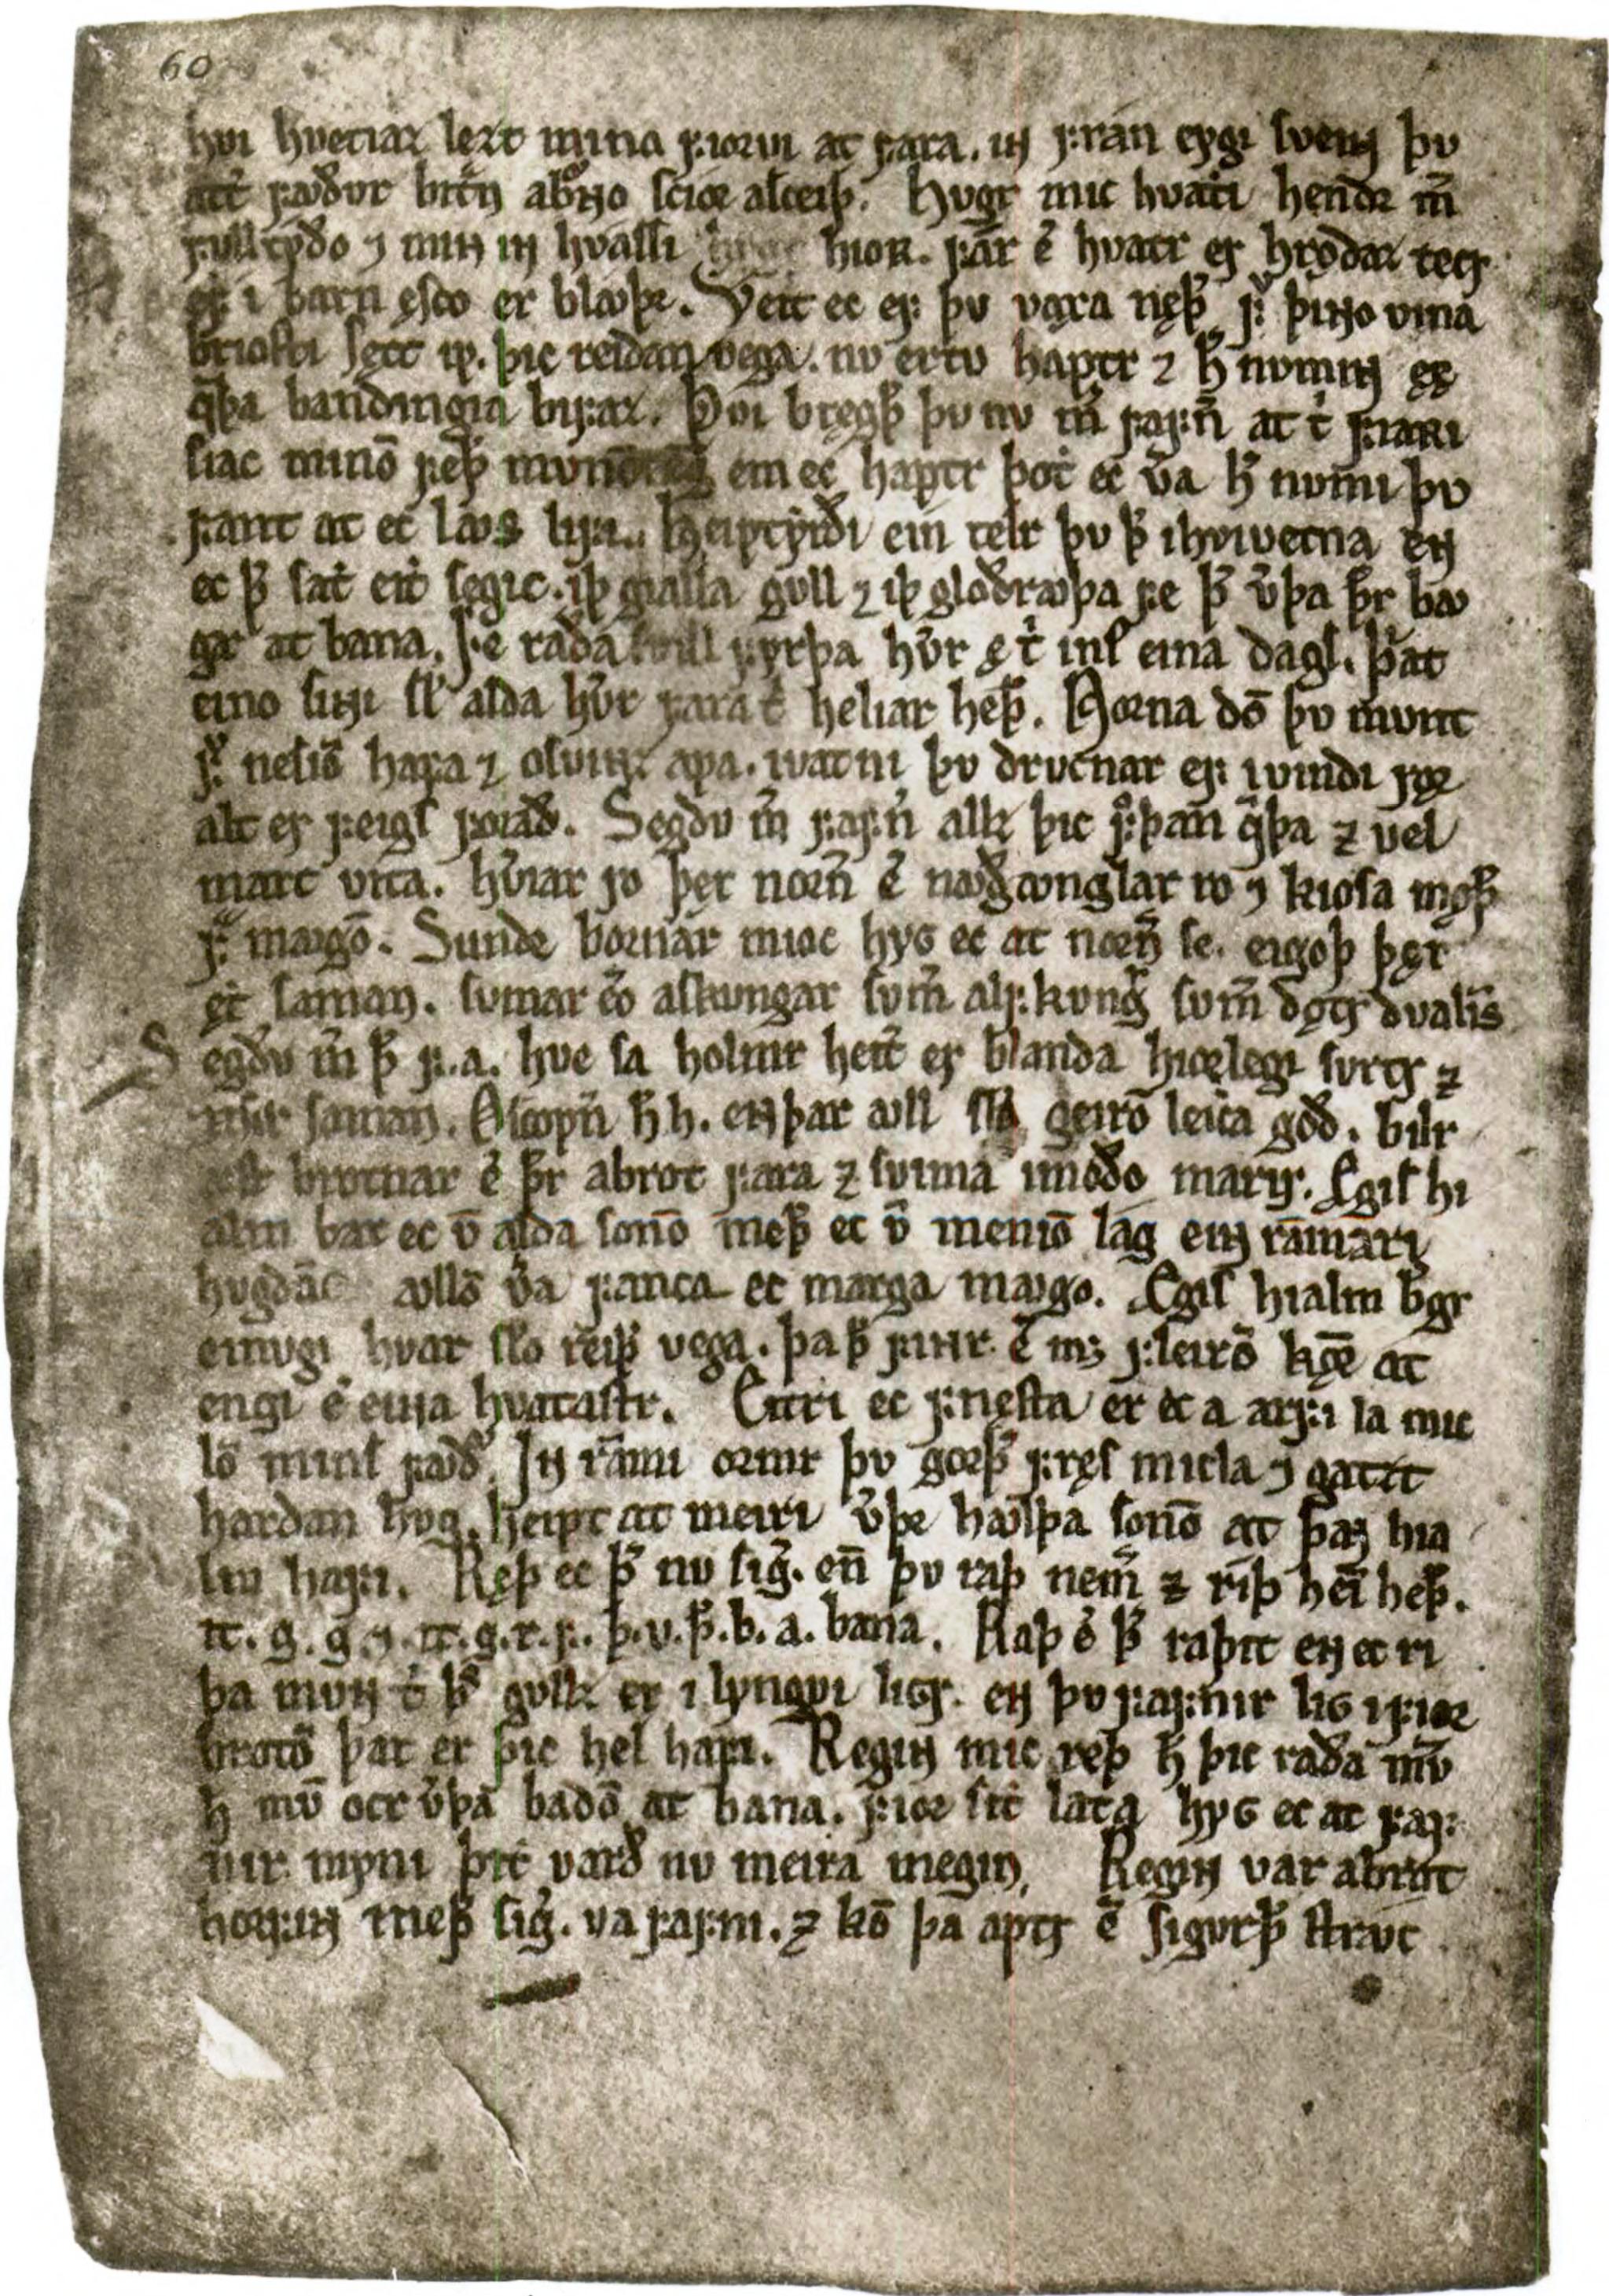 60
hvi hvetiaz lezt mina fiorvi at fara. iɴ frán eygi sveiɴ þv
att fꜹðvr bitrɴ abvrno scior asceiþ. Hvgr mic hvatti hendr m̄
fvlltyðo ⁊ miɴ iɴ hvassi hiorr. fár ē hvatr er hrǫðaz tecr
ef i barn ęsco er blꜹþr. Veit ec ef þv vaxa nęþ᷎ f᷎ þiɴo vina
briosti sętt m̄. þic reiðan vega. nv ertv haptr ⁊ h᷎nvmiɴ ę
q̄þa bandingia bifaz. Þvi bregþ᷎ þv nv m̄ fafn̄ at t᷎ fiarri
siac minō feþ᷎ mvnō eigi em ec haptr þót ec v᷎a h᷎nvmi þv
fant at ec lꜹs lifi. Heiptyrði ein telr þv þ᷎ ihvivetna eɴ
ec þ᷎ satt eitt segic. iþ gialla gvll ⁊ iþ gloðrꜹþa fe þ᷎ v᷎þa þr̄ bꜹ
gar at bana. Fe ráða scill fyrþa hv᷎r ę t᷎ ins eina dags. þat
eino siɴi sl̄ alda hv᷎r fara t᷎ heliar heþ᷎. Norna dō þv mvnt
f᷎ nesiō hafa ⁊ osviɴz apa. ivatni þv drvcnar ef ivindi rǫr
alt er feigs foraþ. Segðv m̄ fafn᷎ allz þic froþan q̄þa ⁊ vel
mart vita. hv᷎iar ro þęr norn᷎ ē nꜹðgꜹnglar ro ⁊ kiosa mǫþ᷎
f᷎ mꜹgō. Svndr bornar mioc hyg ec at norn᷎ se. eigoþ þęr
ętt saman. svmar ero askvngar svm᷎ alfkvng᷎ svm᷎ dǫtr dvalins
Segðv m̄ þ᷎ f.a. hve sa holmr heitir er blanda hiorlegi svrtr ⁊
ęsir saman. Oscopn᷎ h᷎ h. eɴ þar ꜹll sl̄o geirō leica goð. bilr
ꜹst brotnar ē þr̄ abrot fara ⁊ svima imoðo marir. Egis hi
alm bar ec v̄ alda sonō meþ᷎ ec v̄ meniō lag eiɴ ramari
hvgðac ꜹllō v᷎a fanca ec marga mꜹgo. Egis hialm bgr
einvgi hvar slo reiþ᷎ vega. þa þ᷎ fiɴr ē mȝ fleirō kǫr at
engi ē eiɴa hvatastr. Eitri ec fnęsta er ec a arfi la mic
lō mins fꜹð᷎. Iɴ rami ormr þv gorþ᷎ fręs micla ⁊ gatzt
harðan hvg. heipt at meiri v᷎þr hꜹlþa sonō at þaɴ hia
lm hafi. Ręþ ec þ᷎ nv sig᷎. eɴ þv raþ nem᷎ ⁊ riþ heī heþ᷎.
iþ. g. g. ⁊. iþ. g. r. f. þ. v. þ᷎. b. a. bana. Raþ ē þ᷎ raþit eɴ ec ri
þa mvn t᷎ þ᷎ gvllz er i lyngvi ligr. eɴ þv fafnir lig ifior
brotō þar er þic hel hafi. Regiɴ mic reþ h᷎ þic ráða mv̄
h᷎ mv̄ ocr v᷎þa báðō at bana. fior sitt láta hyg ec at faf
nir myni þitt varð nv meira megiɴ. Regiɴ var abrot
horfiɴ meþ᷎ sig᷎. va fafni. ⁊ kō þa aptr ē sigvrþ᷎ strꜹc